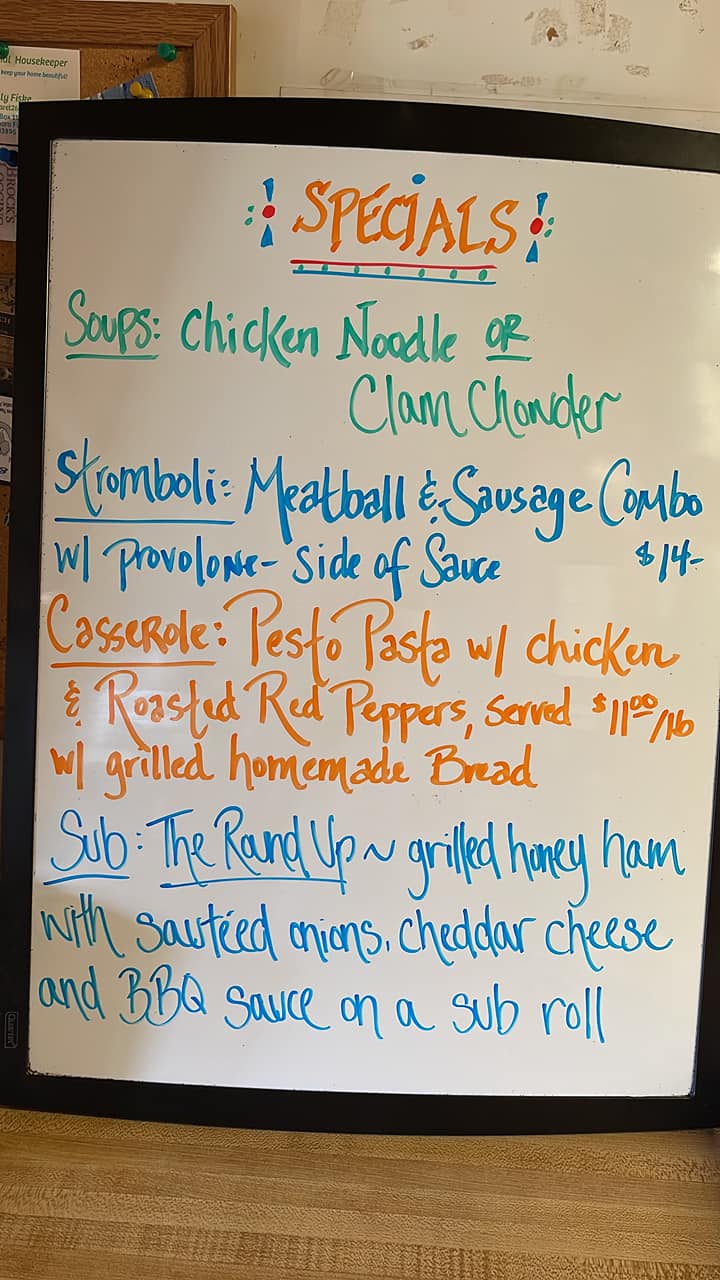 al Housekeeper
keep your home beautiful!
ly Fiske
! SPECIALS !
Soups: Chicken Noodle OR
Clam Chowder
Stromboli: Meatball & Sausage Combo
w/ Provolone - Side of Sauce $14-
Casserole: Pesto Pasta w/ chicken
& Roasted Red Peppers, Served $11.00/lb
w/ grilled homemade Bread
Sub: The Rand Up ~ grilled honey ham
with sautéed onions, cheddar cheese
and BBQ sauce on a sub roll
QUARTET